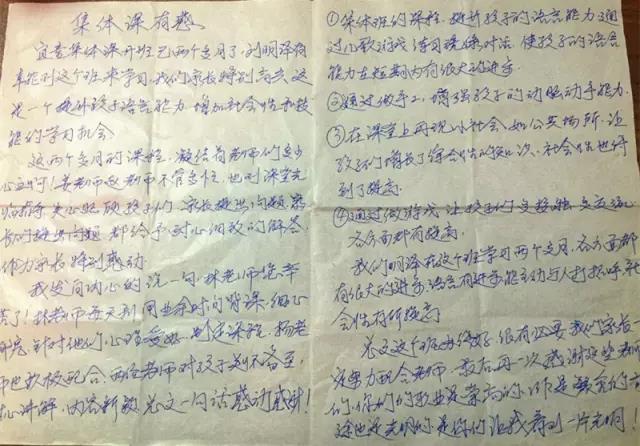 集体课有感
宜童集体课开班已两个多月了,刘明泽有
幸能到这个班来学习,我们家长特别高兴,这
是一个提升孩子语言能力,增加社会性和技
能的学习机会
这两个多月的课程,凝结着老师们多少
心血啊!姜老师 老师不管多忙,也到课堂亲
临指导,关心照顾孩子们,家长提出问题,家
长们提出问题都给予耐心细致的解答,
作为家长特别感动
我发自内心的说一句,林老师您辛
苦了!林老师每天利用业余时间备课,细心
研究,针对他们心理爱好,制定课程,杨老
师也积极配合,两位老师对孩子关怀备至,
耐心讲解,内容新颖,总之一句话感动感谢!
①集体班的课程,提升孩子的语言能力,通
过儿歌游戏情习现象对话,使孩子的语言
能力在短期内有很大的进步
②通过做手工,增强孩子的动脑动手能力.
③在课堂上再现小社会,如公共场所,让
孩子们增长了综合性的知识,社会性也得
到了提高.
④通过做游戏,让孩子的交接触交互流
各方面都有提高.
我们明泽在这个班学习两个多月,各方面都
有很大的进步,语言有进步,能主动与人打招呼,社
会性有所提高
总之这个班办得好,很有必要,我们家长一
定努力配合老师,最后再一次感谢这些老师
们,你们的职业是崇高的,你们是 的
途也是光明的,是你们让我看到一片光明!